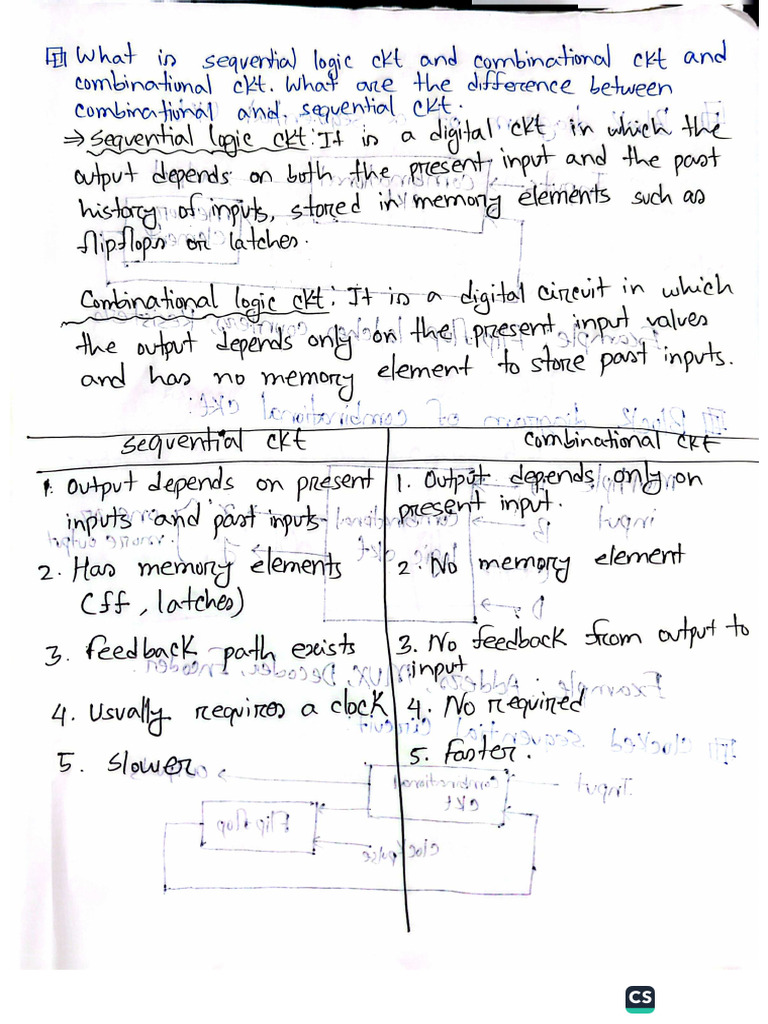 What is sequential logic ckt and combinational ckt and
combinational ckt. What are the difference between
combinational and sequential ckt.
⇒ Sequential logic ckt: It is a digital ckt in which the
output depends on both the present input and the past
history of inputs, stored in memory elements such as
flipflops or latches.
Combinational logic ckt: It is a digital circuit in which
the output depends only on the present input values
and has no memory element to store past inputs.
Sequential ckt
1. Output depends on present
inputs and past inputs
2. Has memory elements
(ff, latches)
3. feedback path exists
4. Usually requires a clock
5. Slower
Combinational ckt
1. Output depends only on
present input.
2. No memory element
3. No feedback from output to
input
4. No required
5. faster.
CS